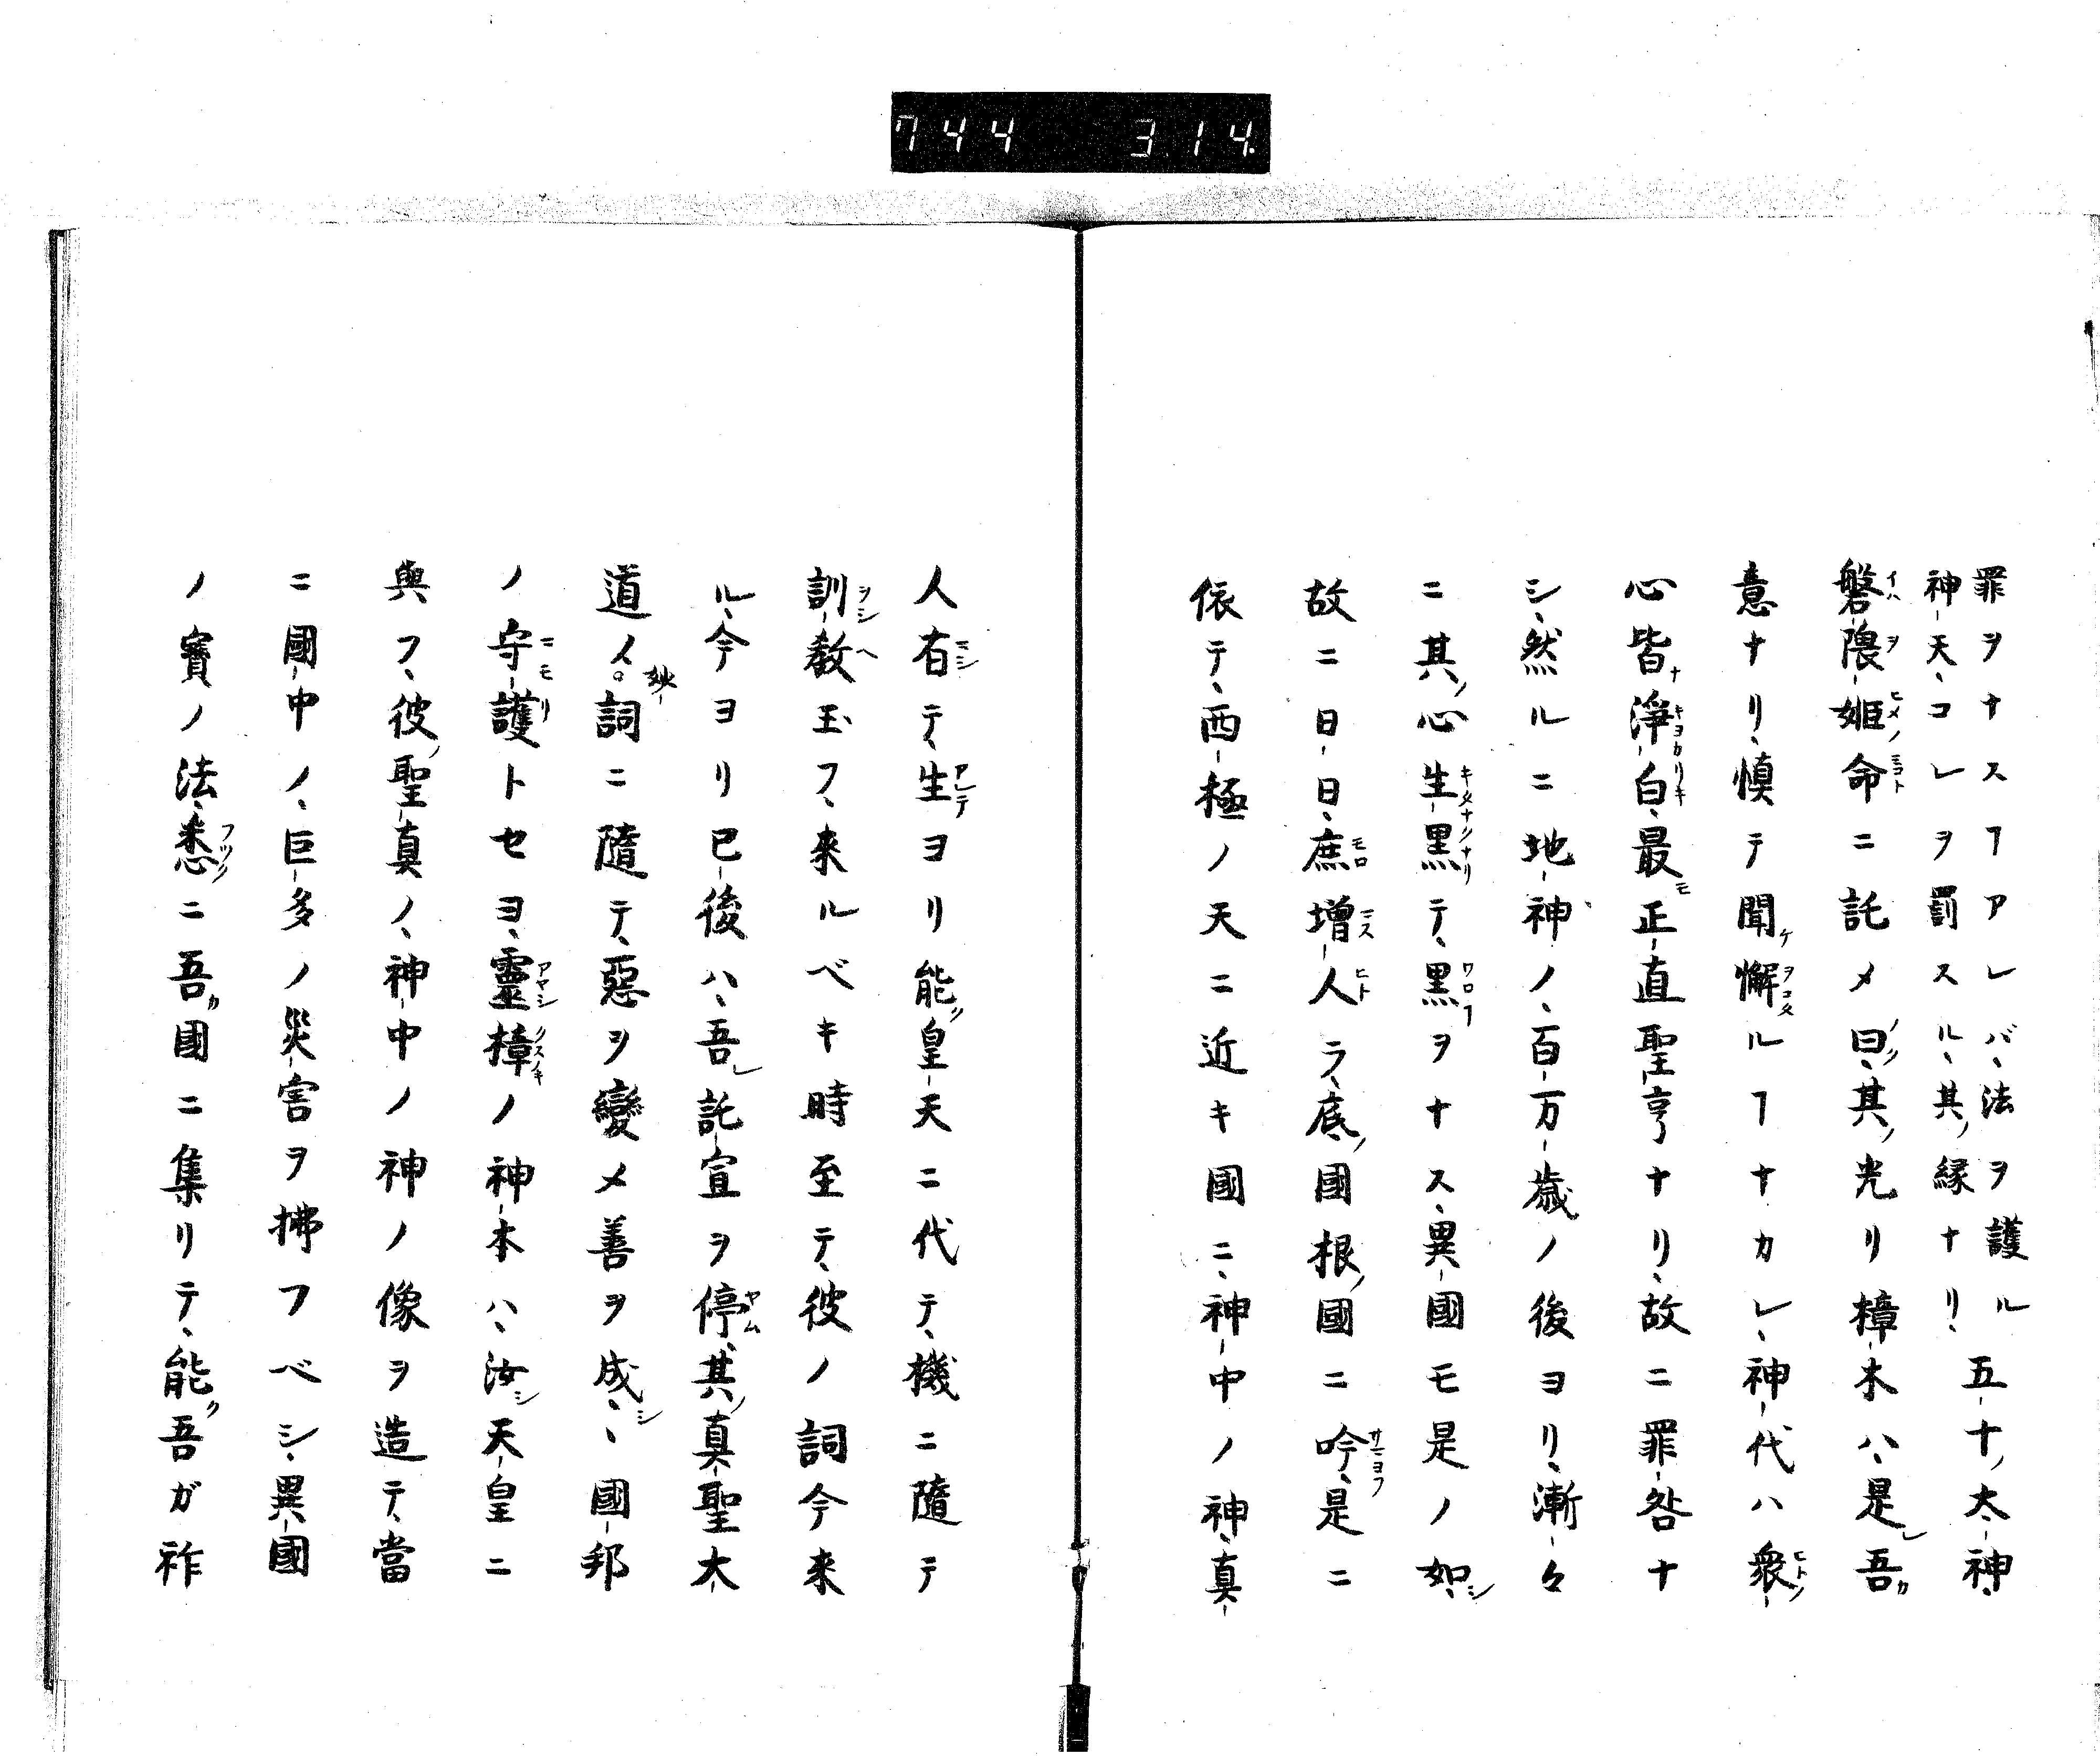 744 314.
罪ヲナスヿアレバ、法ヲ護ル五十ノ太神、
神天、コレヲ罰スル、其ノ縁ナリ、
磐隈姫命ニ託メ曰ク、其ノ光リ樟木ハ、是レ吾カ
意ナリ、慎テ聞ケ懈ルヿナカレ、神代ハ衆
心皆淨白、最モ正直聖亨ナリ、故ニ罪咎ナ
シ、然ルニ地神ノ、百万歳ノ後ヨリ、漸々
ニ其ノ心生黒テ、黒ヲナス、異國モ是ノ如シ
故ニ日日、庶増人ラ、底ノ國根ノ國ニ吟、是ニ
依テ、西極ノ天ニ近キ國ニ、神中ノ神、真
人有テ、生ヨリ能ク皇天ニ代テ、機ニ隨テ
訓教玉フ、来ルベキ時至テ、彼ノ詞今来
ル、今ヨリ已後ハ、吾レ託宣ヲ停、其ノ真聖大
道ノ妙詞ニ隨テ、惡ヲ變メ善ヲ成シ、國邦
ノ守護トセヨ、靈樟ノ神木ハ、汝シ天皇ニ
與フ、彼ノ聖真ノ、神中ノ神ノ像ヲ造テ、當
ニ國中ノ、巨多ノ災害ヲ拂フベシ、異國
ノ寳ノ法、悉ニ吾カ國ニ集リテ、能ク吾ガ祚